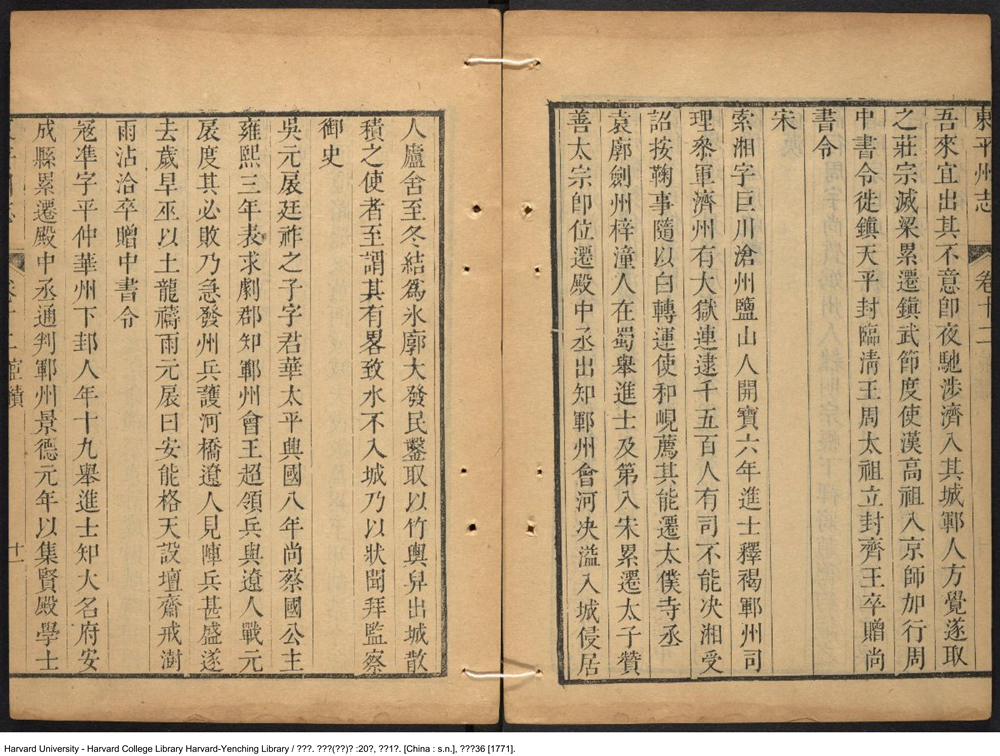 東平州志
卷十二
吾來宜出其不意卽夜馳涉濟入其城鄆人方覺遂取
之莊宗滅梁累遷鎮武節度使漢高祖入京師加行周
中書令徙鎮天平封臨清王周太祖立封齊王卒贈尚
書令
宋
索湘字巨川滄州鹽山人開寶六年進士釋褐鄆州司
理叅軍濟州有大獄連逮千五百人有司不能决湘受
詔按鞠事隨以白轉運使和峴薦其能遷太僕寺丞
袁廓劍州梓潼人在蜀舉進士及第入宋累遷太子贊
善太宗卽位遷殿中丞出知鄆州會河决溢入城侵居
人廬舍至冬結爲氷廓大發民鑿取以竹輿舁出城散
積之使者至謂其有畧致水不入城乃以狀聞拜監察
御史
吳元扆廷祚之子字君華太平興國八年尚蔡國公主
雍熙三年表求劇郡知鄆州會王超領兵與遼人戰元
扆度其必敗乃急發州兵護河橋遼人見陣兵甚盛遂
去歲旱巫以土龍禱雨元扆曰安能格天設壇齋戒澍
雨沾洽卒贈中書令
寇準字平仲華州下邽人年十九舉進士知大名府安
成縣累遷殿中丞通判鄆州景德元年以集賢殿學士
十一
Harvard University - Harvard College Library Harvard-Yenching Library / ???. ???(??)? :20?, ??1?. [China : s.n.], ???36 [1771].